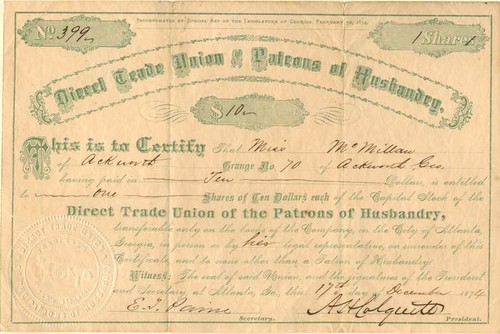 Incorporated by Special Act of the Legislature of Georgia, February 28, 1874.
No. 399
1 Share
Direct Trade Union of Patrons of Husbandry.
$10
This is to Certify That Miss McMillan
of Ackworth Grange No 70 of Ackworth Geo.
having paid in Ten Dollars, is entitled
to one Shares of Ten Dollars each of the Capital Stock of the
Direct Trade Union of the Patrons of Husbandry,
transferable only on the books of the Company, in the City of Atlanta,
Georgia, in person or by her legal representative, on surrender of this
Certificate, and to none other than a Patron of Husbandry.
Witness; The seal of said Union, and the signatures of the President
and Secretary, at Atlanta, Ga. this 17th day of December 1874
E. T. Paine A H Colquitt
Secretary. President.